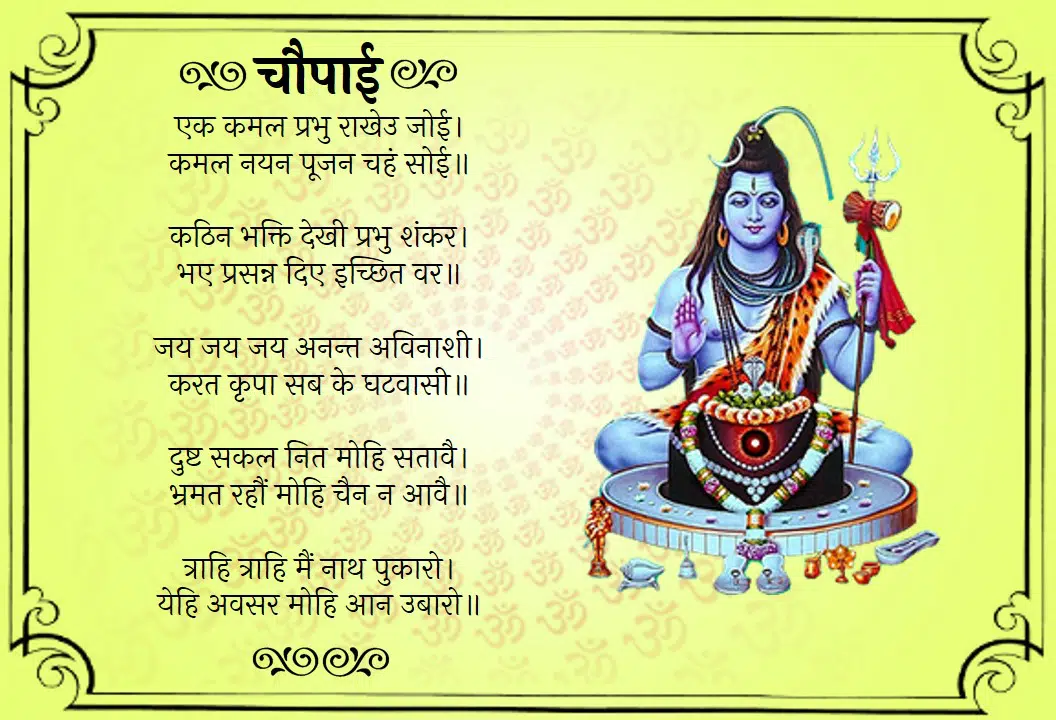 चौपाई
एक कमल प्रभु राखेउ जोई।
कमल नयन पूजन चहं सोई॥
कठिन भक्ति देखी प्रभु शंकर।
भए प्रसन्न दिए इच्छित वर॥
जय जय जय अनन्त अविनाशी।
करत कृपा सब के घटवासी॥
दुष्ट सकल नित मोहि सतावै।
भ्रमत रहौं मोहि चैन न आवै॥
त्राहि त्राहि मैं नाथ पुकारो।
येहि अवसर मोहि आन उबारो॥